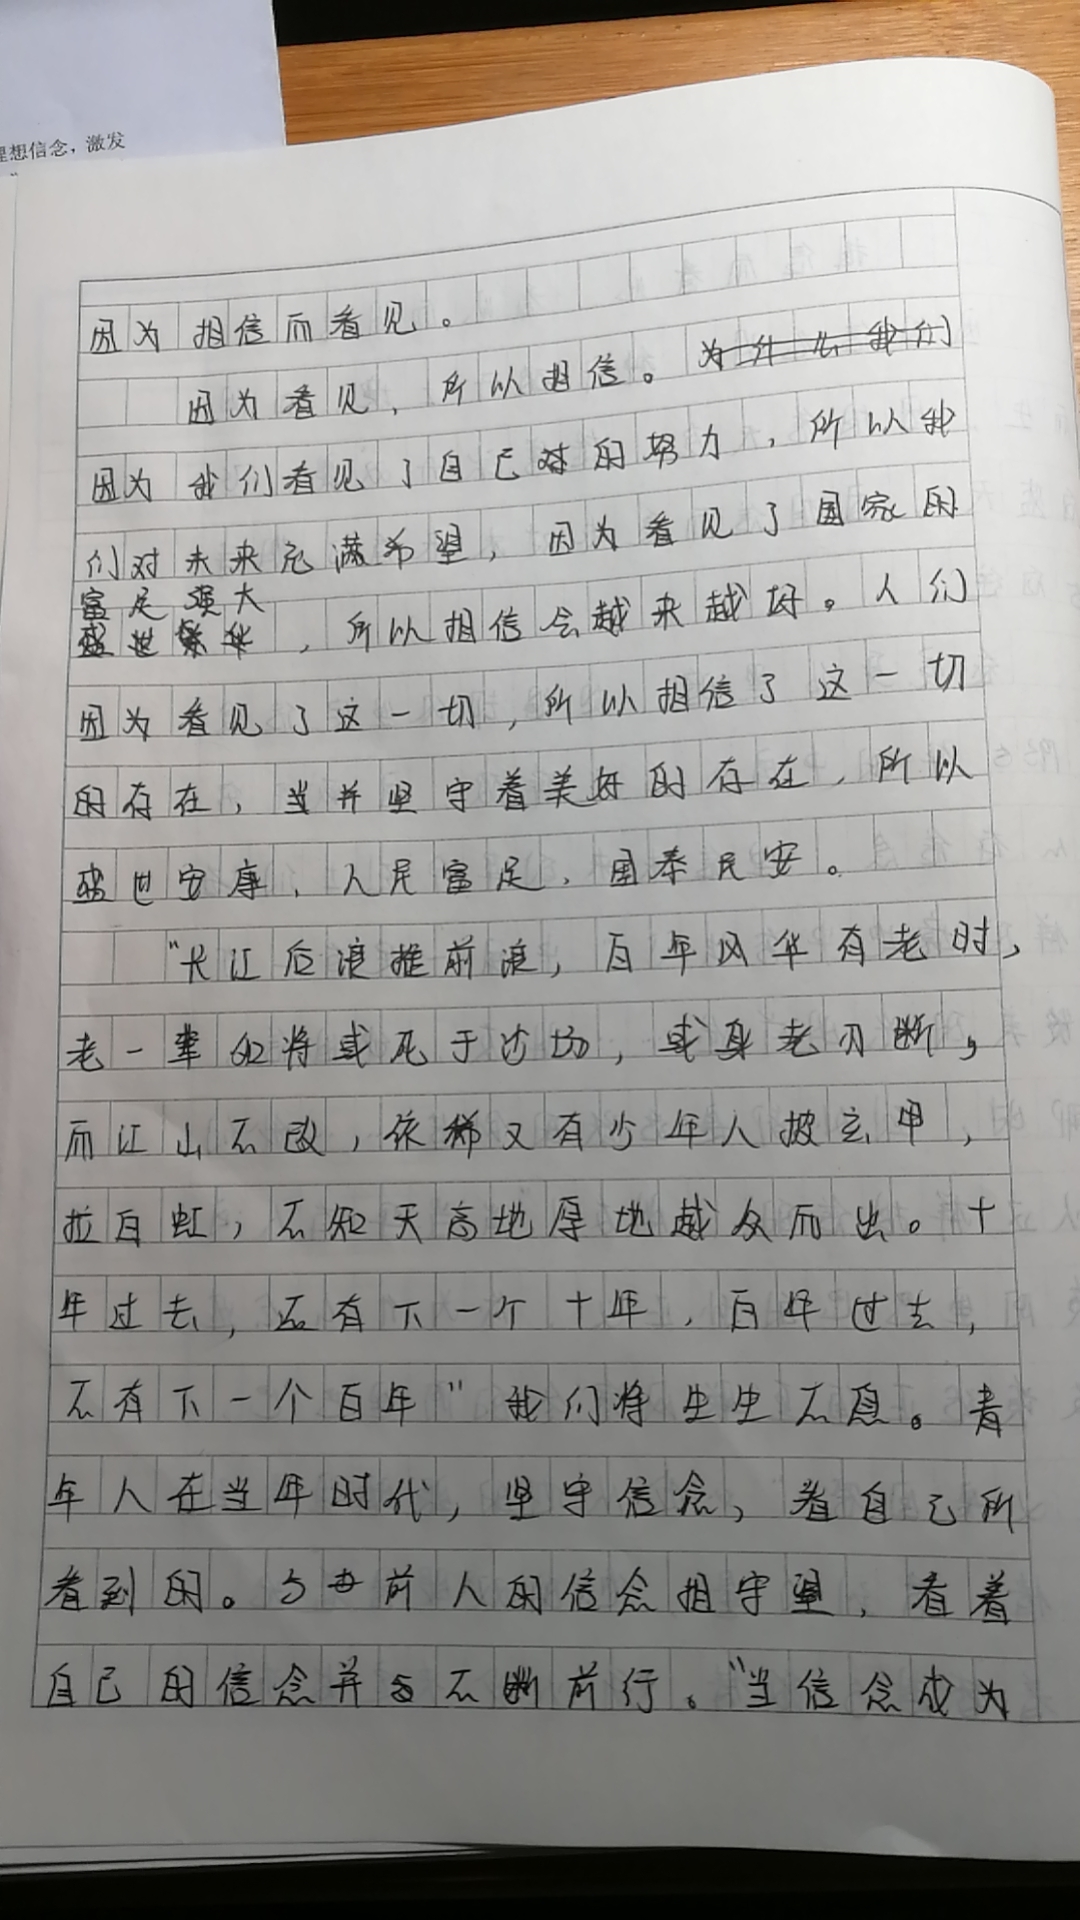 理想信念，激发
因为相信而看见。
因为看见，所以相信。为什么我们
因为我们看见了自己对的努力，所以我
们对未来充满希望，因为看见了国家的
富足强大
盛世繁华，所以相信会越来越好。人们
因为看见了这一切，所以相信了这一切
的存在，当并坚守着美好的存在，所以
盛世安康，人民富足，国泰民安。
“长江后浪推前浪，百年风华有老时，
老一辈的将或死于沙场，或身老刃断，
而江山不改，依稀又有少年人披玄甲，
拉白虹，不知天高地厚地越众而出。十
年过去，还有下一个十年，百年过去，
不有下一个百年”我们将生生不息。青
年人在当年时代，坚守信念，看自己所
看到的。与前人的信念相守望，看着
自己的信念并不断前行。“当信念成为